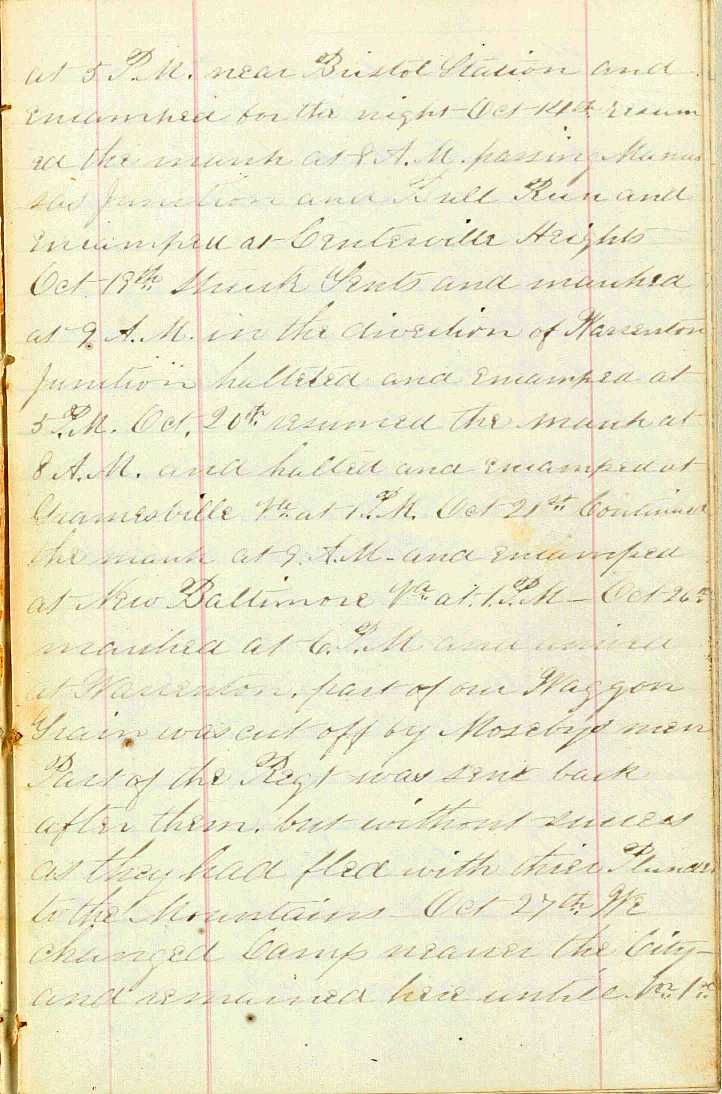 at 5 P.M. near Bristol Station and
encamped for the night Oct 14th resum
ed the march at 8 A.M. passing Manas
sas Junction and Bull Run and
encamped at Centerville Heights
Oct. 19th Struck Tents and marched
at 9 A.M. in the direction of Warrenton
Junction halteted and encamped at
5 P.M. Oct. 20th resumed the march at
8 A.M. and halted and encamped at
Gainesville Va at 1 P.M. Oct 21st Continued
the march at 9 A.M - and encamped
at New Baltimore Va at 1 P.M - Oct 26th
marched at 6 P.M and arrived
at Warrenton. part of our Waggon
Train was cut off by Moseby's men
Part of the Regt was sent back
after them. but without success
as they had fled with thier Plunder
to the Mountains - Oct 27th We
changed Camp nearer the City -
and remained here untile